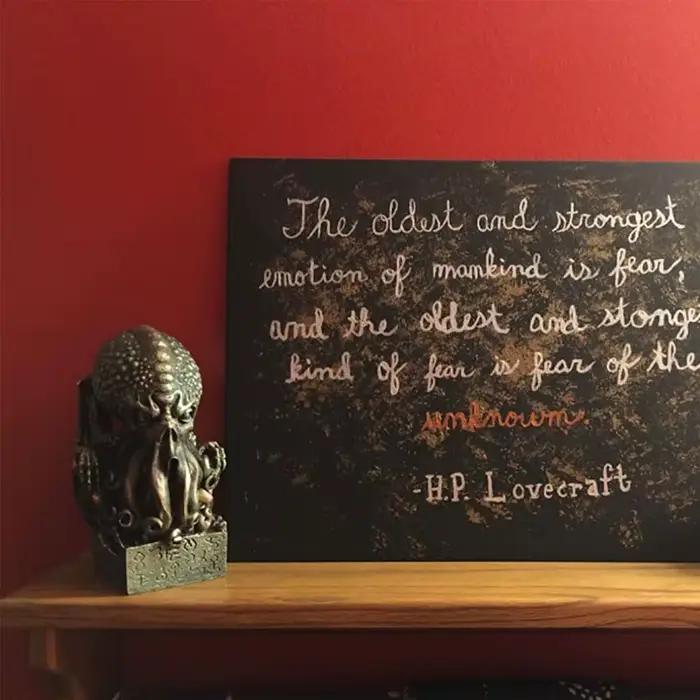 The oldest and strongest
emotion of mankind is fear,
and the oldest and stonges
kind of fear is fear of the
unknown.
-H.P. Lovecraft